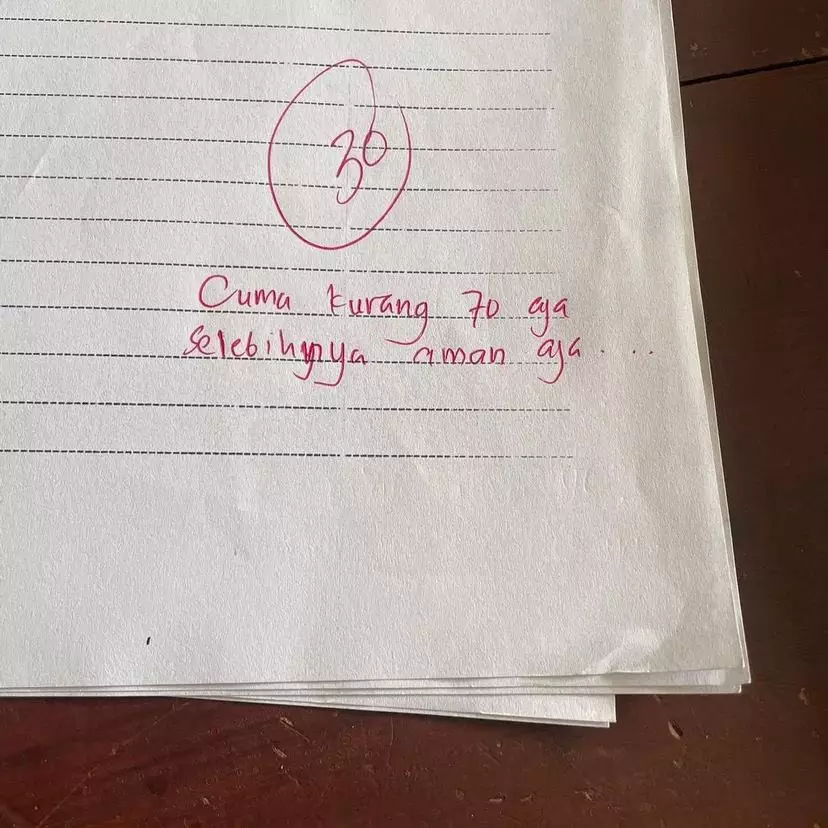 30
Cuma kurang 70 aja
selebihnya aman aja....